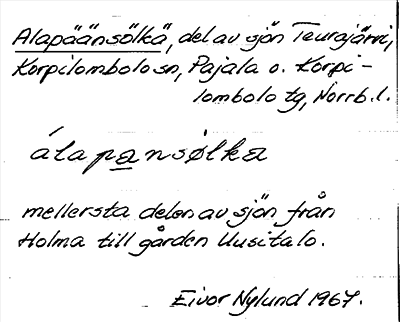 Alapäänsölkä, del av sjön Teurajärvi,
Korpilombolo sn, Pajala o. Korpi-
lombolo tg, Norrb. l.
álapansølka
mellersta delen av sjön från
Holma till gården Uusitalo.
Eivor Nylund 1967.